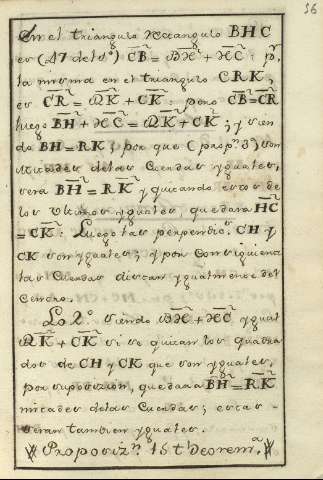 56
En el triangulo rectangulo BHC
es (47 del 1º) CB² = BH² + HC²: pr
la misma en el triangulo CRK,
es CR² = RK² + CK²: pero CB² = CR²
luego BH² + HC² = RK² + CK²; y sien
do BH = RK, por que (propn. 3) son
mitades delas Cuerdas yguales,
sera BH² = RK² y quitando estos de
los Ultimos yguales, quedara HC²
= CK²: Luego las perpendics. CH y
CK son yguales; y por Consiguiente
las Cuerdas distan ygualmente del
Centro.
Lo 2º. siendo BH² + HC² ygual
RK² + CK² si se quitan los quadra
dos de CH y CK que son yguales,
por suposizion, quedara BH² = RK²
mitades delas Cuerdas; estas
seran tambien yguales.
Proposizn. 15 theorema.